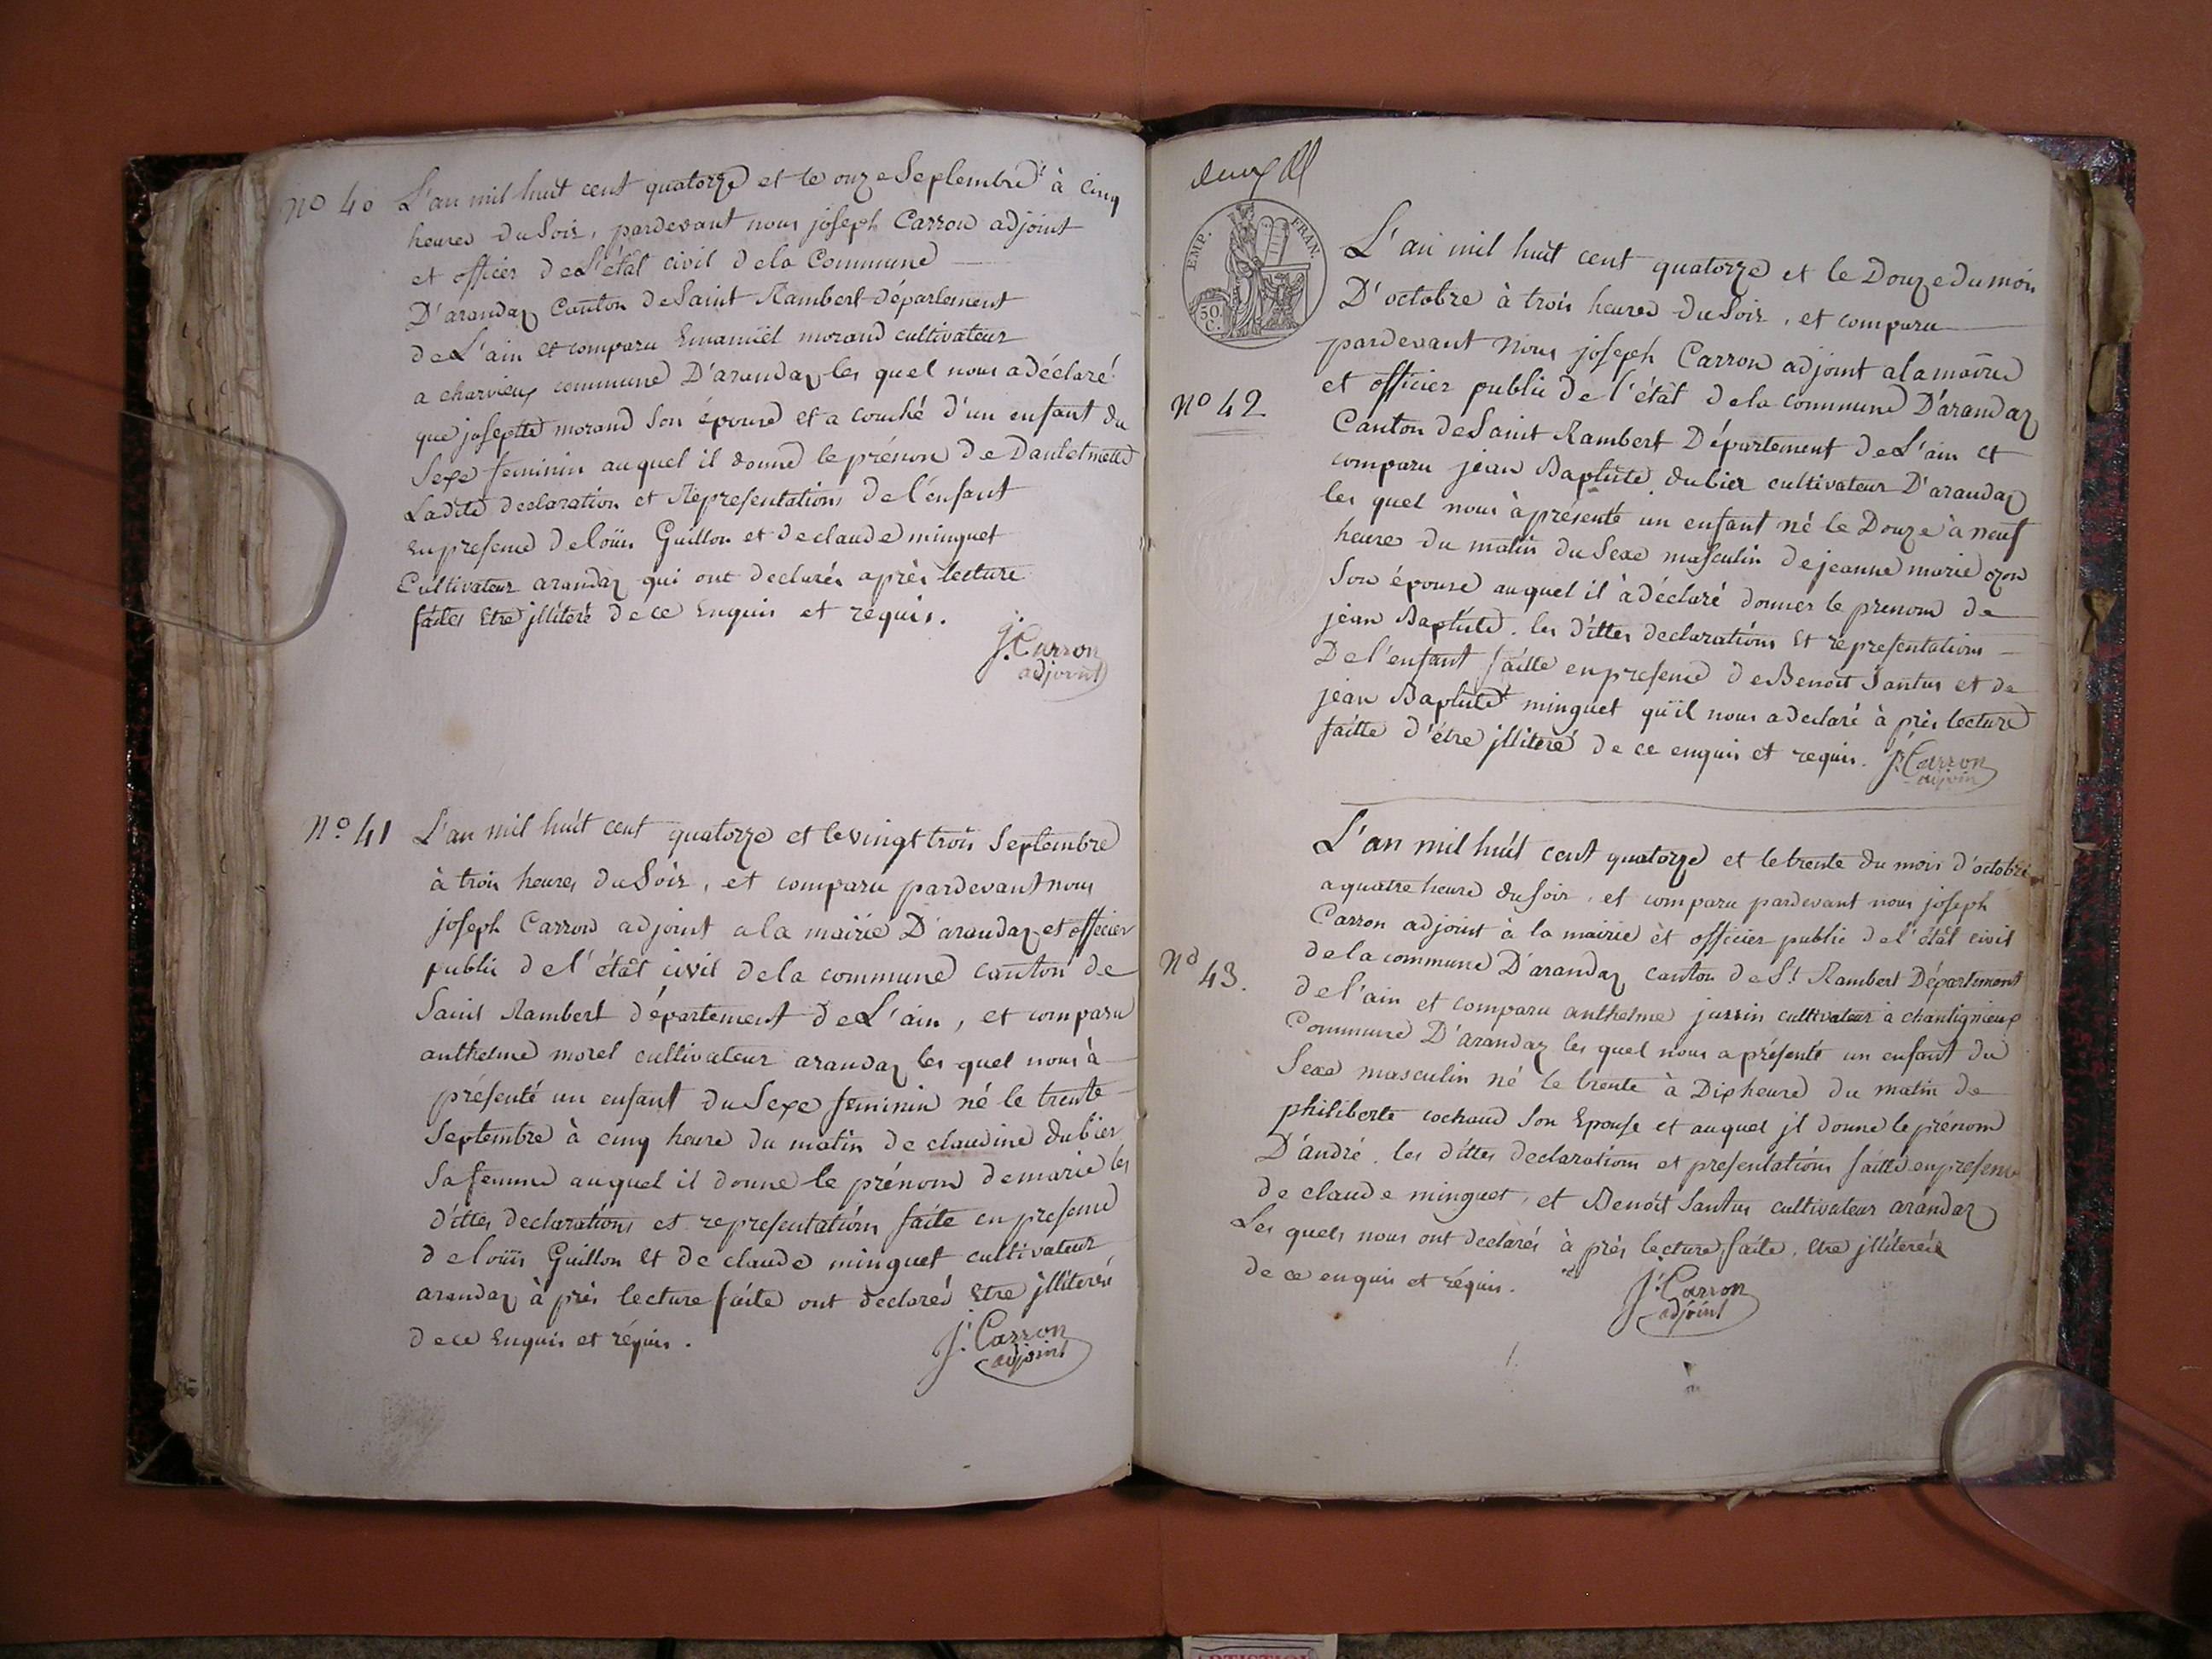 No 40
L'an mil huit cent quatorze et le onze Septembre à cinq
heures du Soir, pardevant nous joseph Carron adjoint
et officier de L'état civil de la Commune
D'arandaz Canton de Saint Rambert département
de L'ain et comparu Emanuël morand cultivateur
a charvieux commune D'arandaz les quel nous a déclaré
que josepte morand Son épouse et a couché d'un enfant du
Sexe feminin auquel il donne le prénom de
Ladite declaration et Représentations de l'énfant
en presence de loüis Guillon et de claude minguet
Cultivateur arandaz qui ont declarés après lecture
faites Etre jlliteré de ce Enquis et requis.
J. Carron
adjoint
No 41
L'an mil huit cent quatorze et le vingt trois Septembre
à trois heures du Soir, et comparu pardevant nous
joseph Carron adjoint a la mairie D'arandaz et officier
public de l'état civil de la commune canton de
Saint Rambert département de L'ain, et comparu
anthelme morel cultivateur arandaz les quel nous à
présenté un enfant du Sexe feminin né le trente
Septembre à cinq heure du matin de claudine dubier
Sa femme auquel il donne le prénom de marie les
d'ittes declarations et representations faite en presence
de loüis Guillon et de claude minguet cultivateur
arandaz à près lecture faite ont declarés Etre jlliterés
de ce Enquis et réquis.
J. Carron
adjoint
EMP. FRAN.
50.
C.
No 42
L'an mil huit cent quatorze et le Douze du mois
D'octobre à trois heures du Soir, et comparu
pardevant Nous joseph Carron adjoint a la mairie
et officier public de l'état de la commune D'arandaz
Canton de Saint Rambert Département de L'ain et
comparu jean Baptiste dubier cultivateur D'arandaz
les quel nous à présenté un enfant né le Douze à neuf
heures du matin du Sexe masculin de jeanne marie ozon
Son épouse auquel il à déclaré donner le prenom de
jean Baptiste. les d'ittes declarations et répresentations
De l'enfant faitte en presence de Benoit Santus et de
jean Baptiste minguet qu'il nous a declaré à près lecture
faitte d'être jlliteré de ce enquis et requis.
J. Carron
adjoint
No 43.
L'an mil huit cent quatorze et le trente du mois d'octobre
a quatre heure du soir, et comparu pardevant nous joseph
Carron adjoint à la mairie èt officier public de l'état civil
de la commune D'arandaz canton de St Rambert Département
de l'ain et comparu anthelme jussin cultivateur a chantignieux
Commune D'arandaz les quel nous a présenté un enfant du
Sexe masculin né le trente à Dix heure du matin de
philiberte cochaud Son Epouse et auquel jl donne le prénom
D'andré. les d'ittes declarations et presentations faitte en presence
de claude minguet, et Benoit Santus cultivateur arandaz
Les quels nous ont declarés à près lecture faite, Etre jlliterés
de ce enquis et réquis.
J. Carron
adjoint